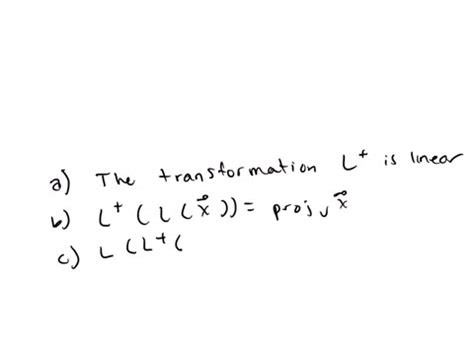 a) The transformation L⁺ is linear
b) L⁺(L(x⃗)) = proj_v x⃗
c) L(L⁺(